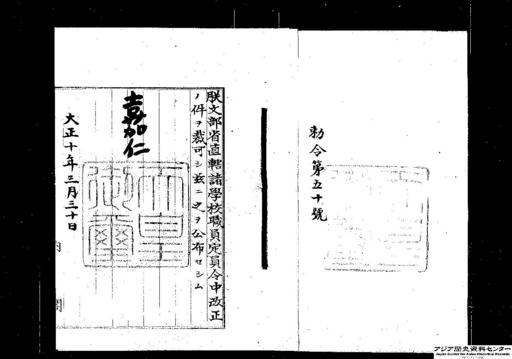 勅令第五十號
朕文部省直轄諸學校職員定員令中改正
ノ件ヲ裁可シ茲ニ之ヲ公布セシム
嘉仁
天皇御璽
大正十年三月三十日
内閣
アジア歴史資料センター
Japan Center for Asian Historical Records